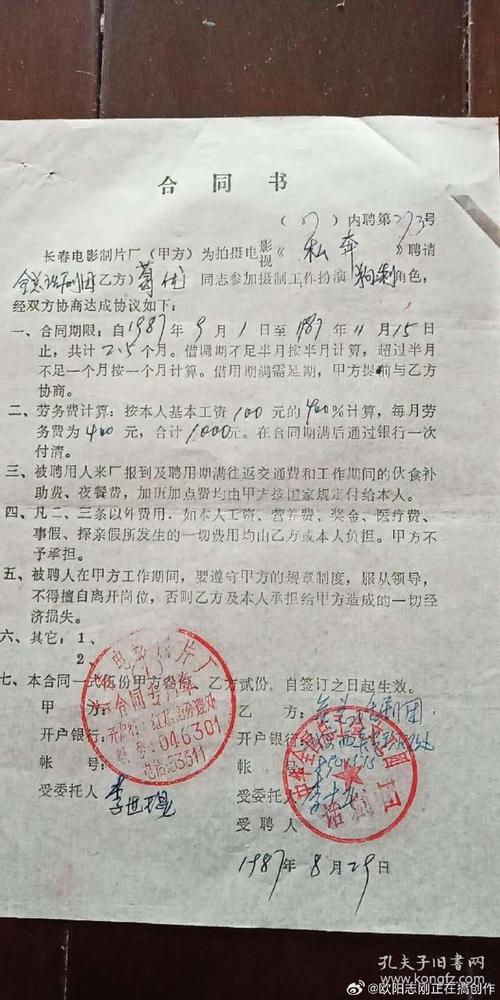 合同书
(87)内聘第273号
长春电影制片厂(甲方)为拍摄电影视《私奔》聘请
全总话剧团乙方)葛优同志参加摄制工作扮演 角色,
经双方协商达成协议如下:
一、合同期限:自1987年9月1日至1987年11月15日
止,共计2.5个月。借调期不足半月按半月计算,超过半月
不足一个月按一个月计算。借用期满需延期,甲方提前与乙方
协商。
二、劳务费计算:按本人基本工资100元的400%计算,每月劳
务费为400元,合计1000元。在合同期满后通过银行一次
付清。
三、被聘用人来厂报到及聘用期满往返交通费和工作期间的伙食补
助费、夜餐费,加班加点费均由甲方按国家规定付给本人。
四、凡二、三条以外费用.如本人工资、营养费、奖金、医疗费、
事假、探亲假所发生的一切费用均由乙方或本人负担。甲方不
予承担。
五、被聘人在甲方工作期间,要遵守甲方的规章制度,服从领导,
不得擅自离开岗位,否则乙方及本人承担给甲方造成的一切经
济损失。
六、其它:1、
2、
七、本合同一式 份甲方叁份 乙方贰份。自签订之日起生效。
甲方:
开户银行:
帐号:
受委托人
乙方:全总话剧团
开户银行:
帐号:
受委托人
受聘人
1987年8月29日
电影制片厂
合同专用章
046301
电话:53311
话剧团
孔夫子旧书网
kongfz.com
@欧阳志刚正在搞创作